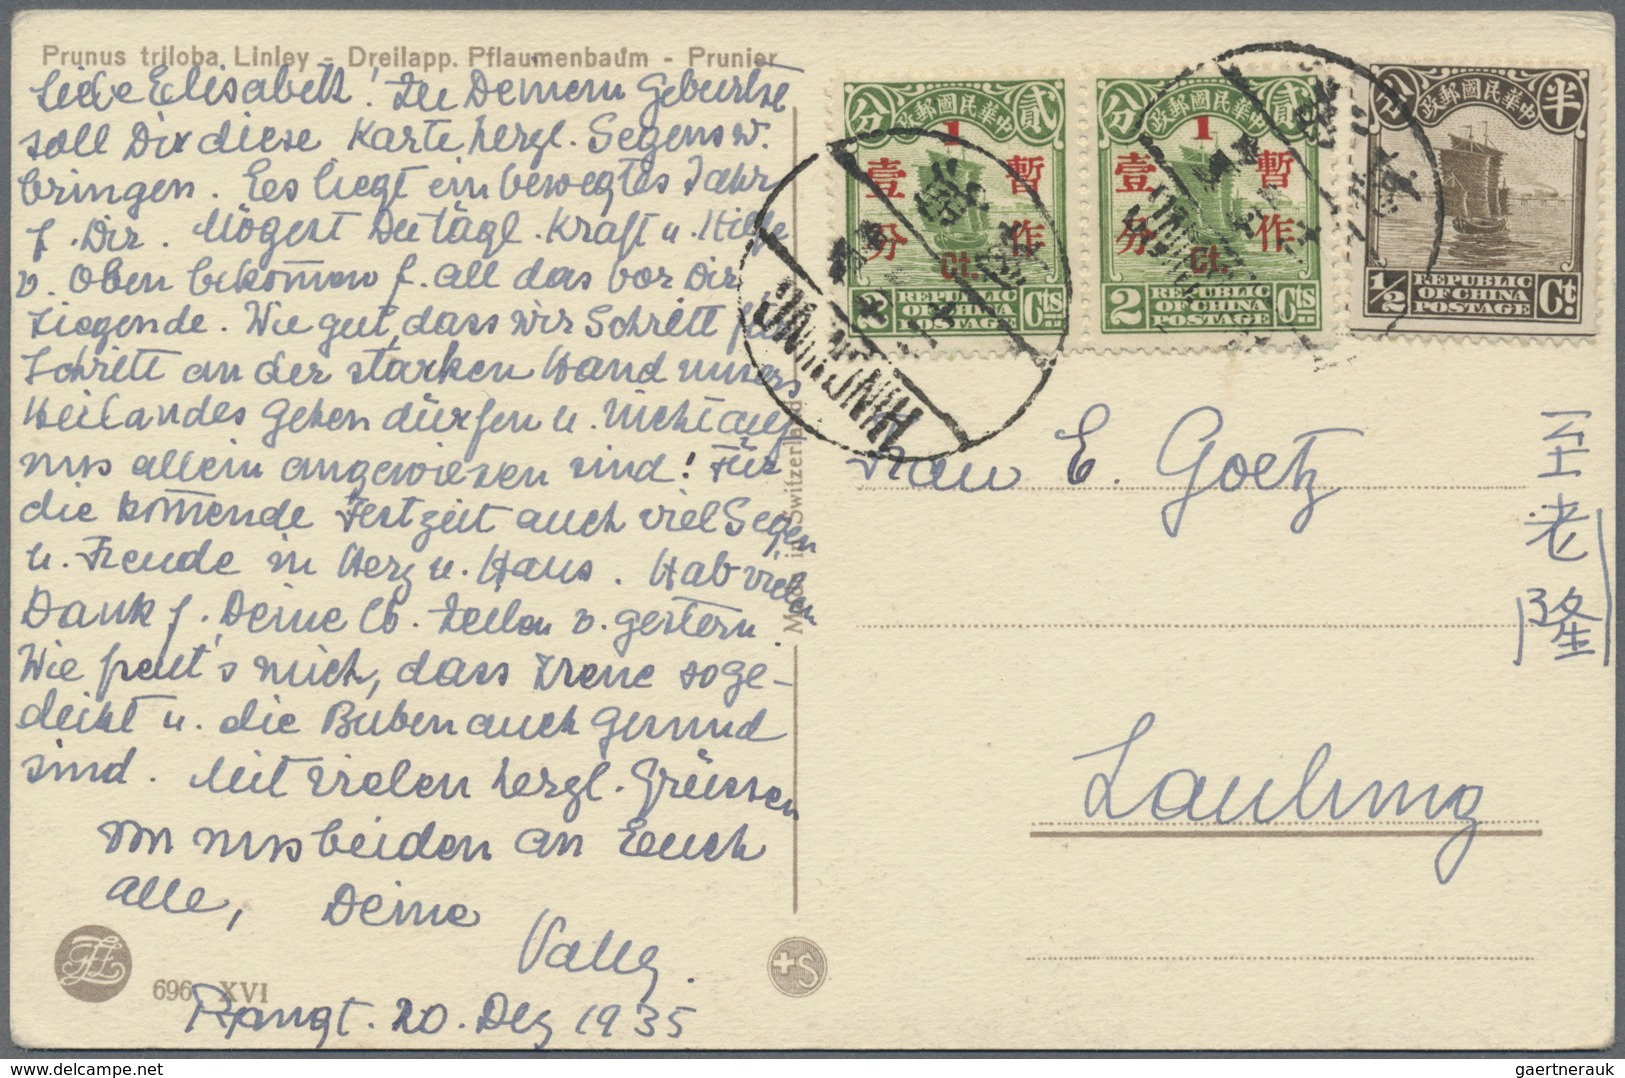 Prunus triloba, Linley - Dreilapp. Pflaumenbaum - Prunier
Liebe Elisabeth! Zu Deinem Geburtst.
soll Dir diese Karte herzl. Segensw.
bringen. Es liegt ein bewegtes Jahr
f. Dir. Mögest Du tägl. Kraft u. Hilfe
v. Oben bekommen f. all das vor Dir
Liegende. Wie gut, dass wir Schritt für
Schritt an der starken Hand unsers
Heilandes gehen dürfen u. nicht auf
uns allein angewiesen sind! Für
die kommende Festzeit auch viel Segen
u. Freude in Herz u. Haus. Hab vielen
Dank f. Deine lb. Zeilen v. gestern.
Wie freut's mich, dass Irene so ge-
deiht u. die Buben auch gesund
sind. Mit vielen herzl. Grüssen
von uns beiden an Euch
alle, Deine
Vally.
696 XVI
20. Dez 1935
Made in Switzerland
+S
分 中華民國郵政 貳
1
暫作
壹分
Ct.
2 REPUBLIC OF CHINA POSTAGE Cts
分 中華民國郵政 貳
1
暫作
壹分
Ct.
2 REPUBLIC OF CHINA POSTAGE Cts
分 中華民國郵政 半
1/2 REPUBLIC OF CHINA POSTAGE Ct.
HINGNING
Frau E. Goetz
老隆
Laulung
www.delcampe.net
gaertnerauk